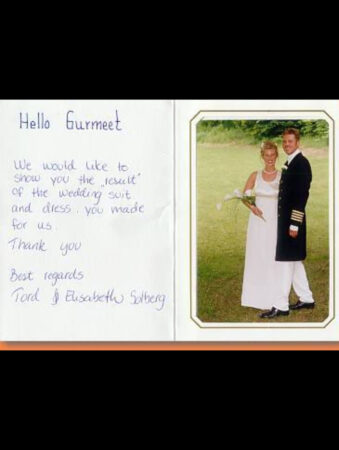 Hello Gurmeet
We would like to
show you the "result"
of the wedding suit
and dress, you made
for us.
Thank you
Best regards
Tord & Elisabeth Solberg